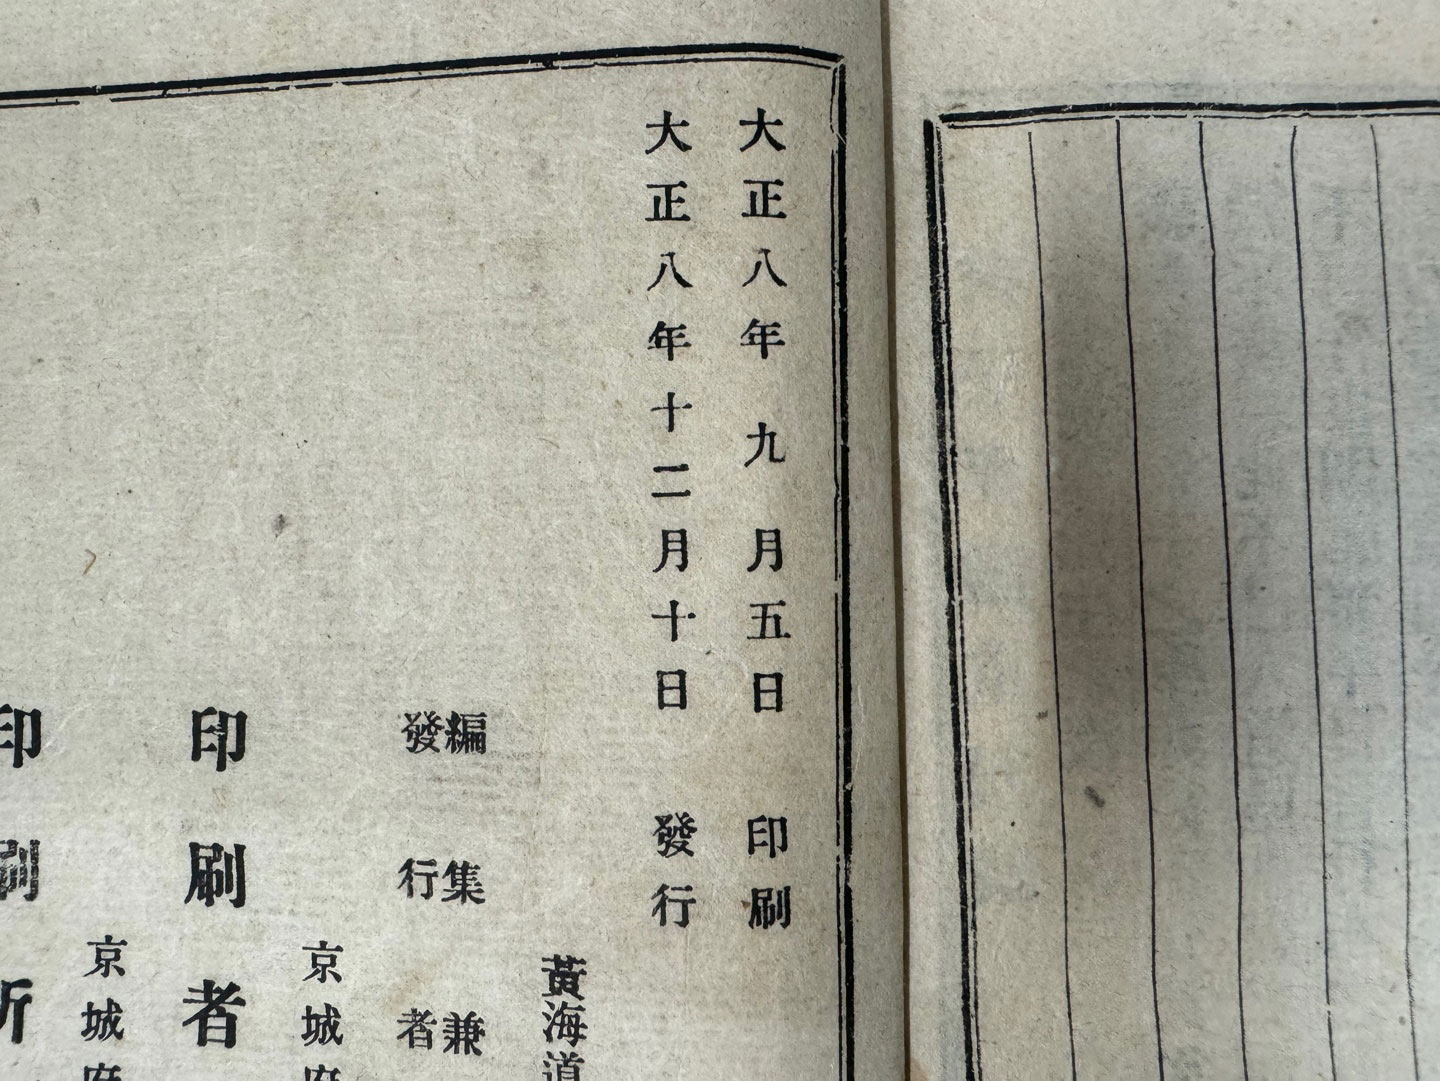 大正八年九月五日印刷
大正八年十二月十日發行
黃海道
編集兼
發行者
京城府
印刷者
京城府
印刷所